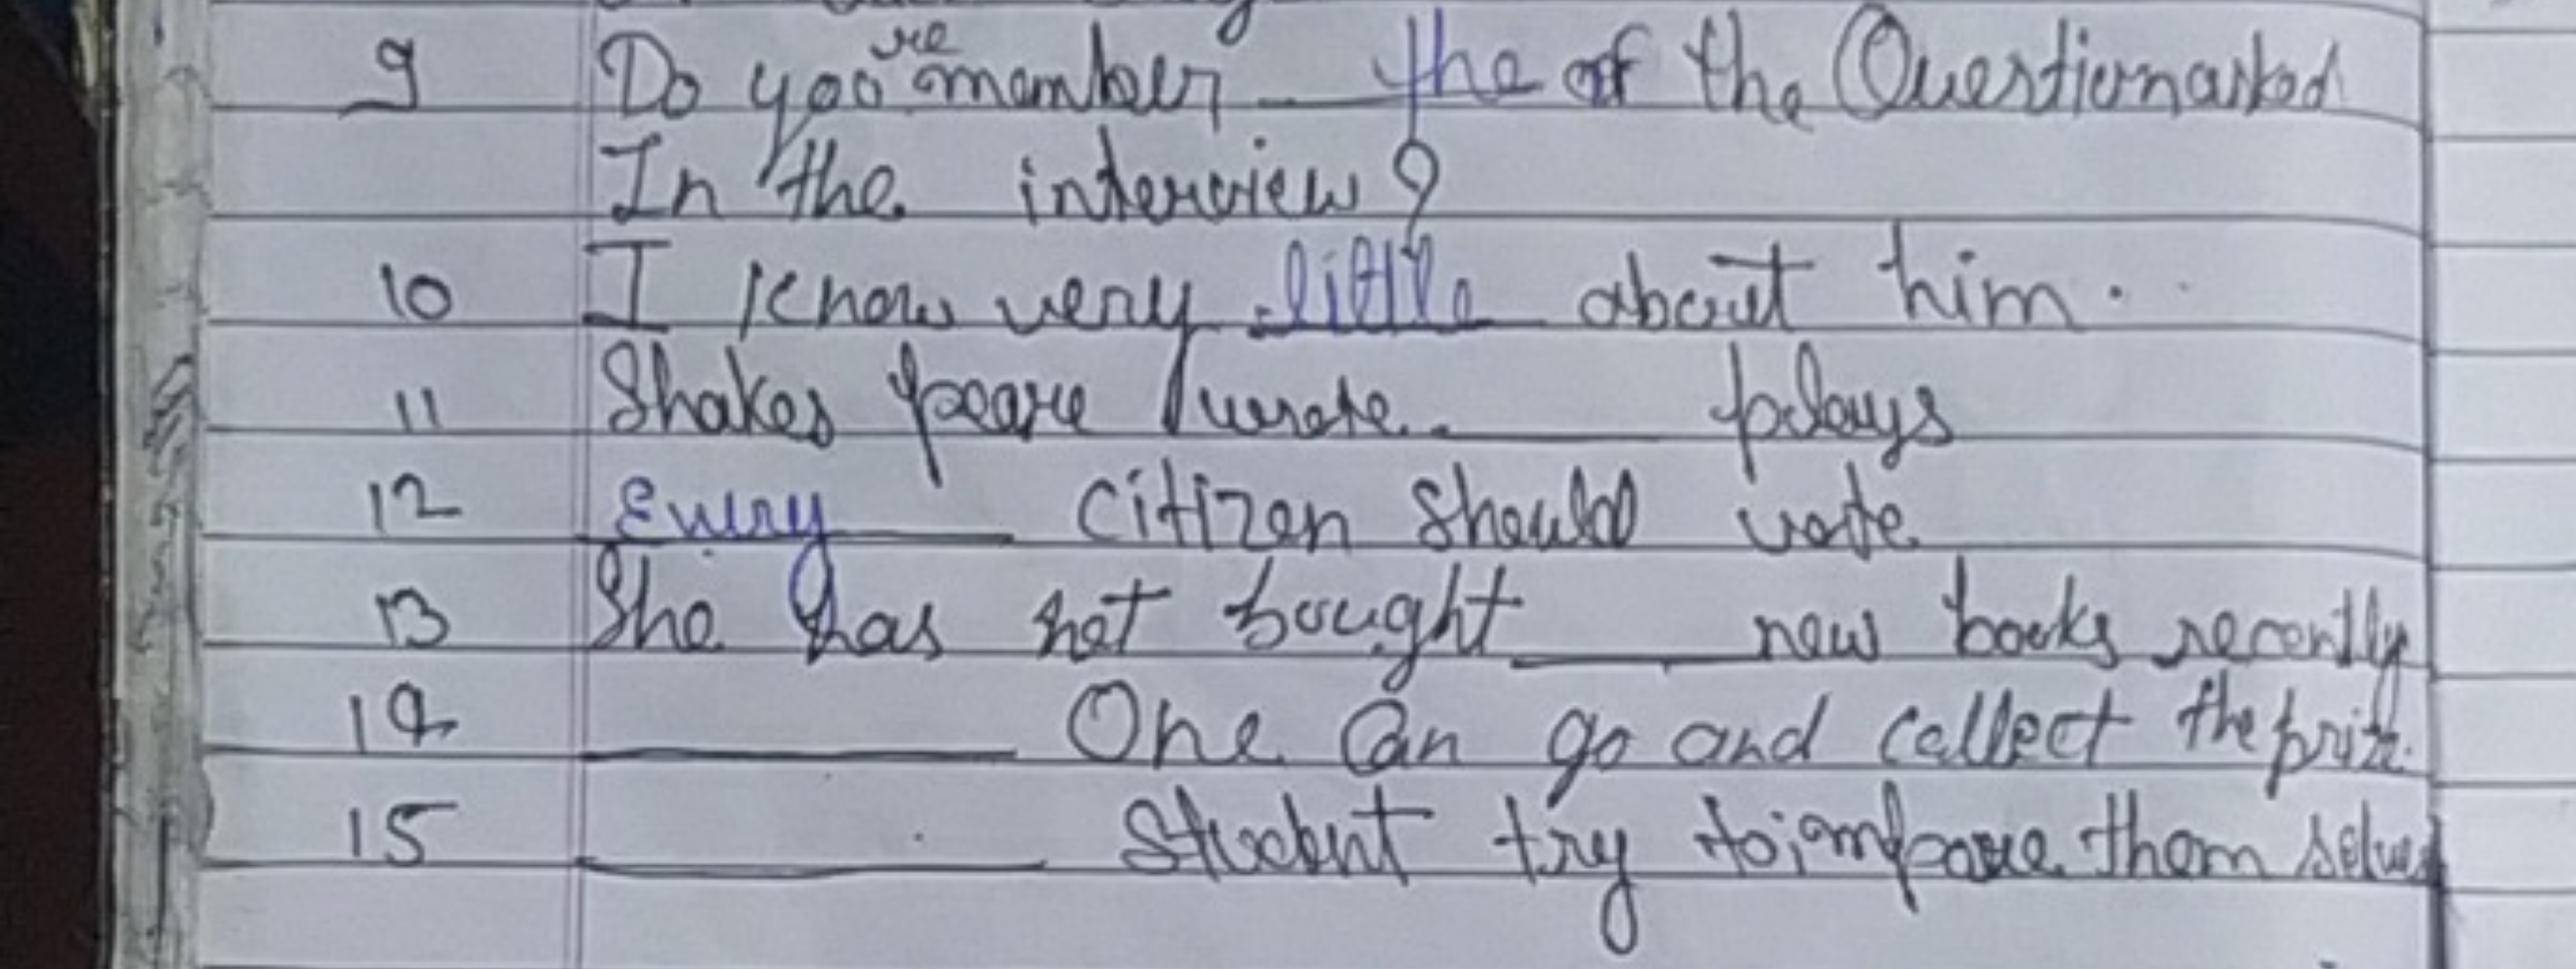 9 Do you remember ___ the of the Questionasked
In the interview?
10 I know very little about him.
11 Shakes peare wrote ___ plays
12 Every ___ citizen should vote
13 She has not bought ___ new books recently
14 ___ One can go and collect the prize.
15 ___ Student try to improve them selves